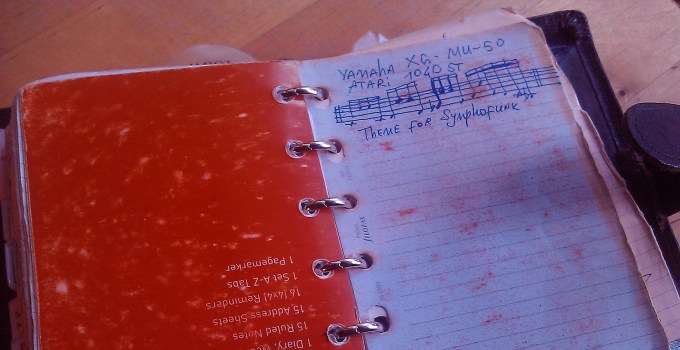 YAMAHA XG-MU-50
ATARI 1040 ST
THEME FOR SYMPHOFUNK
1 Pagemarker
1 Set A-Z Tabs
16 (4x4) Reminders
15 Address Sheets
15 Ruled Notes
1 Diary,